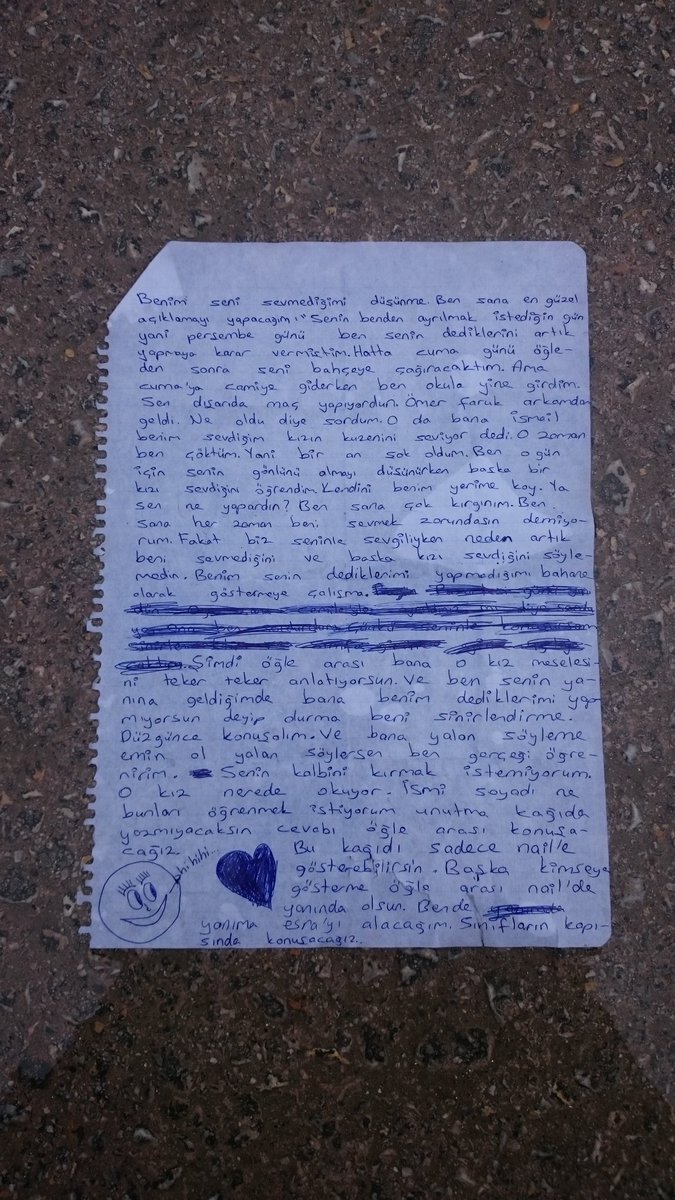 Benim seni sevmediğimi düşünme. Ben sana en güzel
açıklamayı yapacağım:" Senin benden ayrılmak istediğin gün
yani perşembe günü ben senin dediklerini artık
yapmaya karar vermiştim. Hatta cuma günü öğle-
den sonra seni bahçeye çağıracaktım. Ama
cuma'ya camiye giderken ben okula yine girdim.
Sen dışarıda maç yapıyordun. Ömer faruk arkamdan
geldi. Ne oldu diye sordum. O da bana ismail
benim sevdiğim kızın kuzenini seviyor dedi. O zaman
ben çöktüm. Yani bir an şok oldum. Ben o gün
için senin gönlünü almayı düşünürken başka bir
kızı sevdiğini öğrendim. Kendini benim yerime koy. Ya
sen ne yapardın? Ben sana çok kırgınım. Ben
sana her zaman beni sevmek zorundasın demiyo-
rum. Fakat biz seninle sevgiliyken neden artık
beni sevmediğini ve başka kızı sevdiğini söyle-
medin. Benim senin dediklerimi yapmadığımı bahane
olarak göstermeye çalışma.
Şimdi öğle arası bana o kız meselesi-
ni teker teker anlatıyorsun. Ve ben senin ya-
nına geldiğimde bana benim dediklerimi yap
mıyorsun deyip durma beni sinirlendirme.
Düzgünce konuşalım. Ve bana yalan söyleme
emin ol yalan söylersen ben gerçeği öğre-
nirim. Senin kalbini kırmak istemiyorum.
O kız nerede okuyor. İsmi soyadı ne
bunları öğrenmek istiyorum unutma kağıda
yazmıyacaksın cevabı öğle arası konuşa-
cağız
hi hihi...
Bu kağıdı sadece nail'e
gösterebilirsin. Başka kimseye
gösterme öğle arası nail'de
yanında olsun. Bende
yanıma esra'yı alacağım. Sınıfların kapı-
sında konuşacağız..